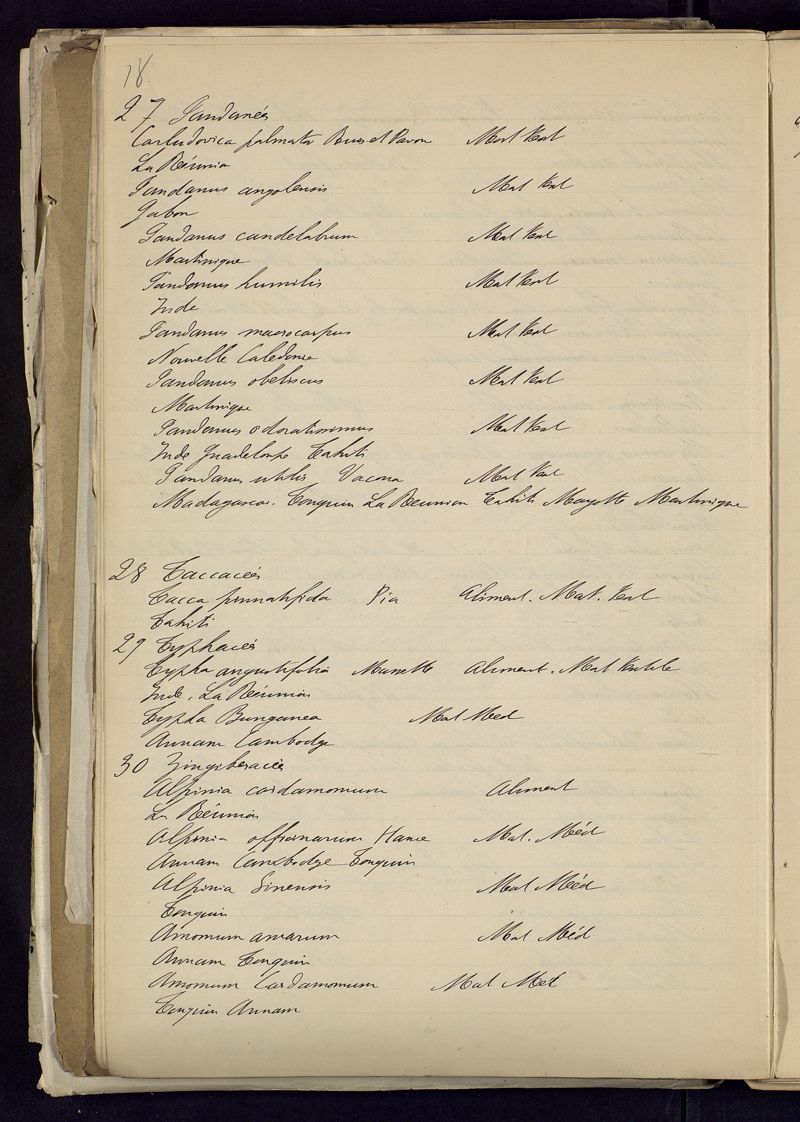 18
27 Pandanées
Carludovica palmata Ruiz et Pavon Mat Text
La Réunion
Pandanus angolensis Mat Text
Gabon
Pandanus candelabrum Mat Text
Martinique
Pandanus humilis Mat Text
Inde
Pandanus macrocarpus Mat Text
Nouvelle Caledonie
Pandanus obeliscus Mat Text
Martinique
Pandanus odoratissimus Mat Text
Inde Guadeloupe Tahiti
Pandanus utilis Vacona Mat Text
Madagascar. Tonquin La Réunion Tahiti Mayotte Martinique
28 Taccacées
Tacca pinnatifida Pia Aliment. Mat. Text
Tahiti
29 Typhacées
Typha angustifolia Massette Aliment. Mat Textile
Inde. La Réunion
Typha Bungeana Mat Med
Annam Cambodge
30 Zingiberacées
Alpinia cardamomum Aliment
La Réunion
Alpinia officinarum Hance Mat. Méd
Annam Cambodge Tonquin
Alpinia Sinensis Mat Méd
Tonquin
Amomum amarum Mat Méd
Annam Tonquin
Amomum Cardamomum Mat Med
Tonquin Annam